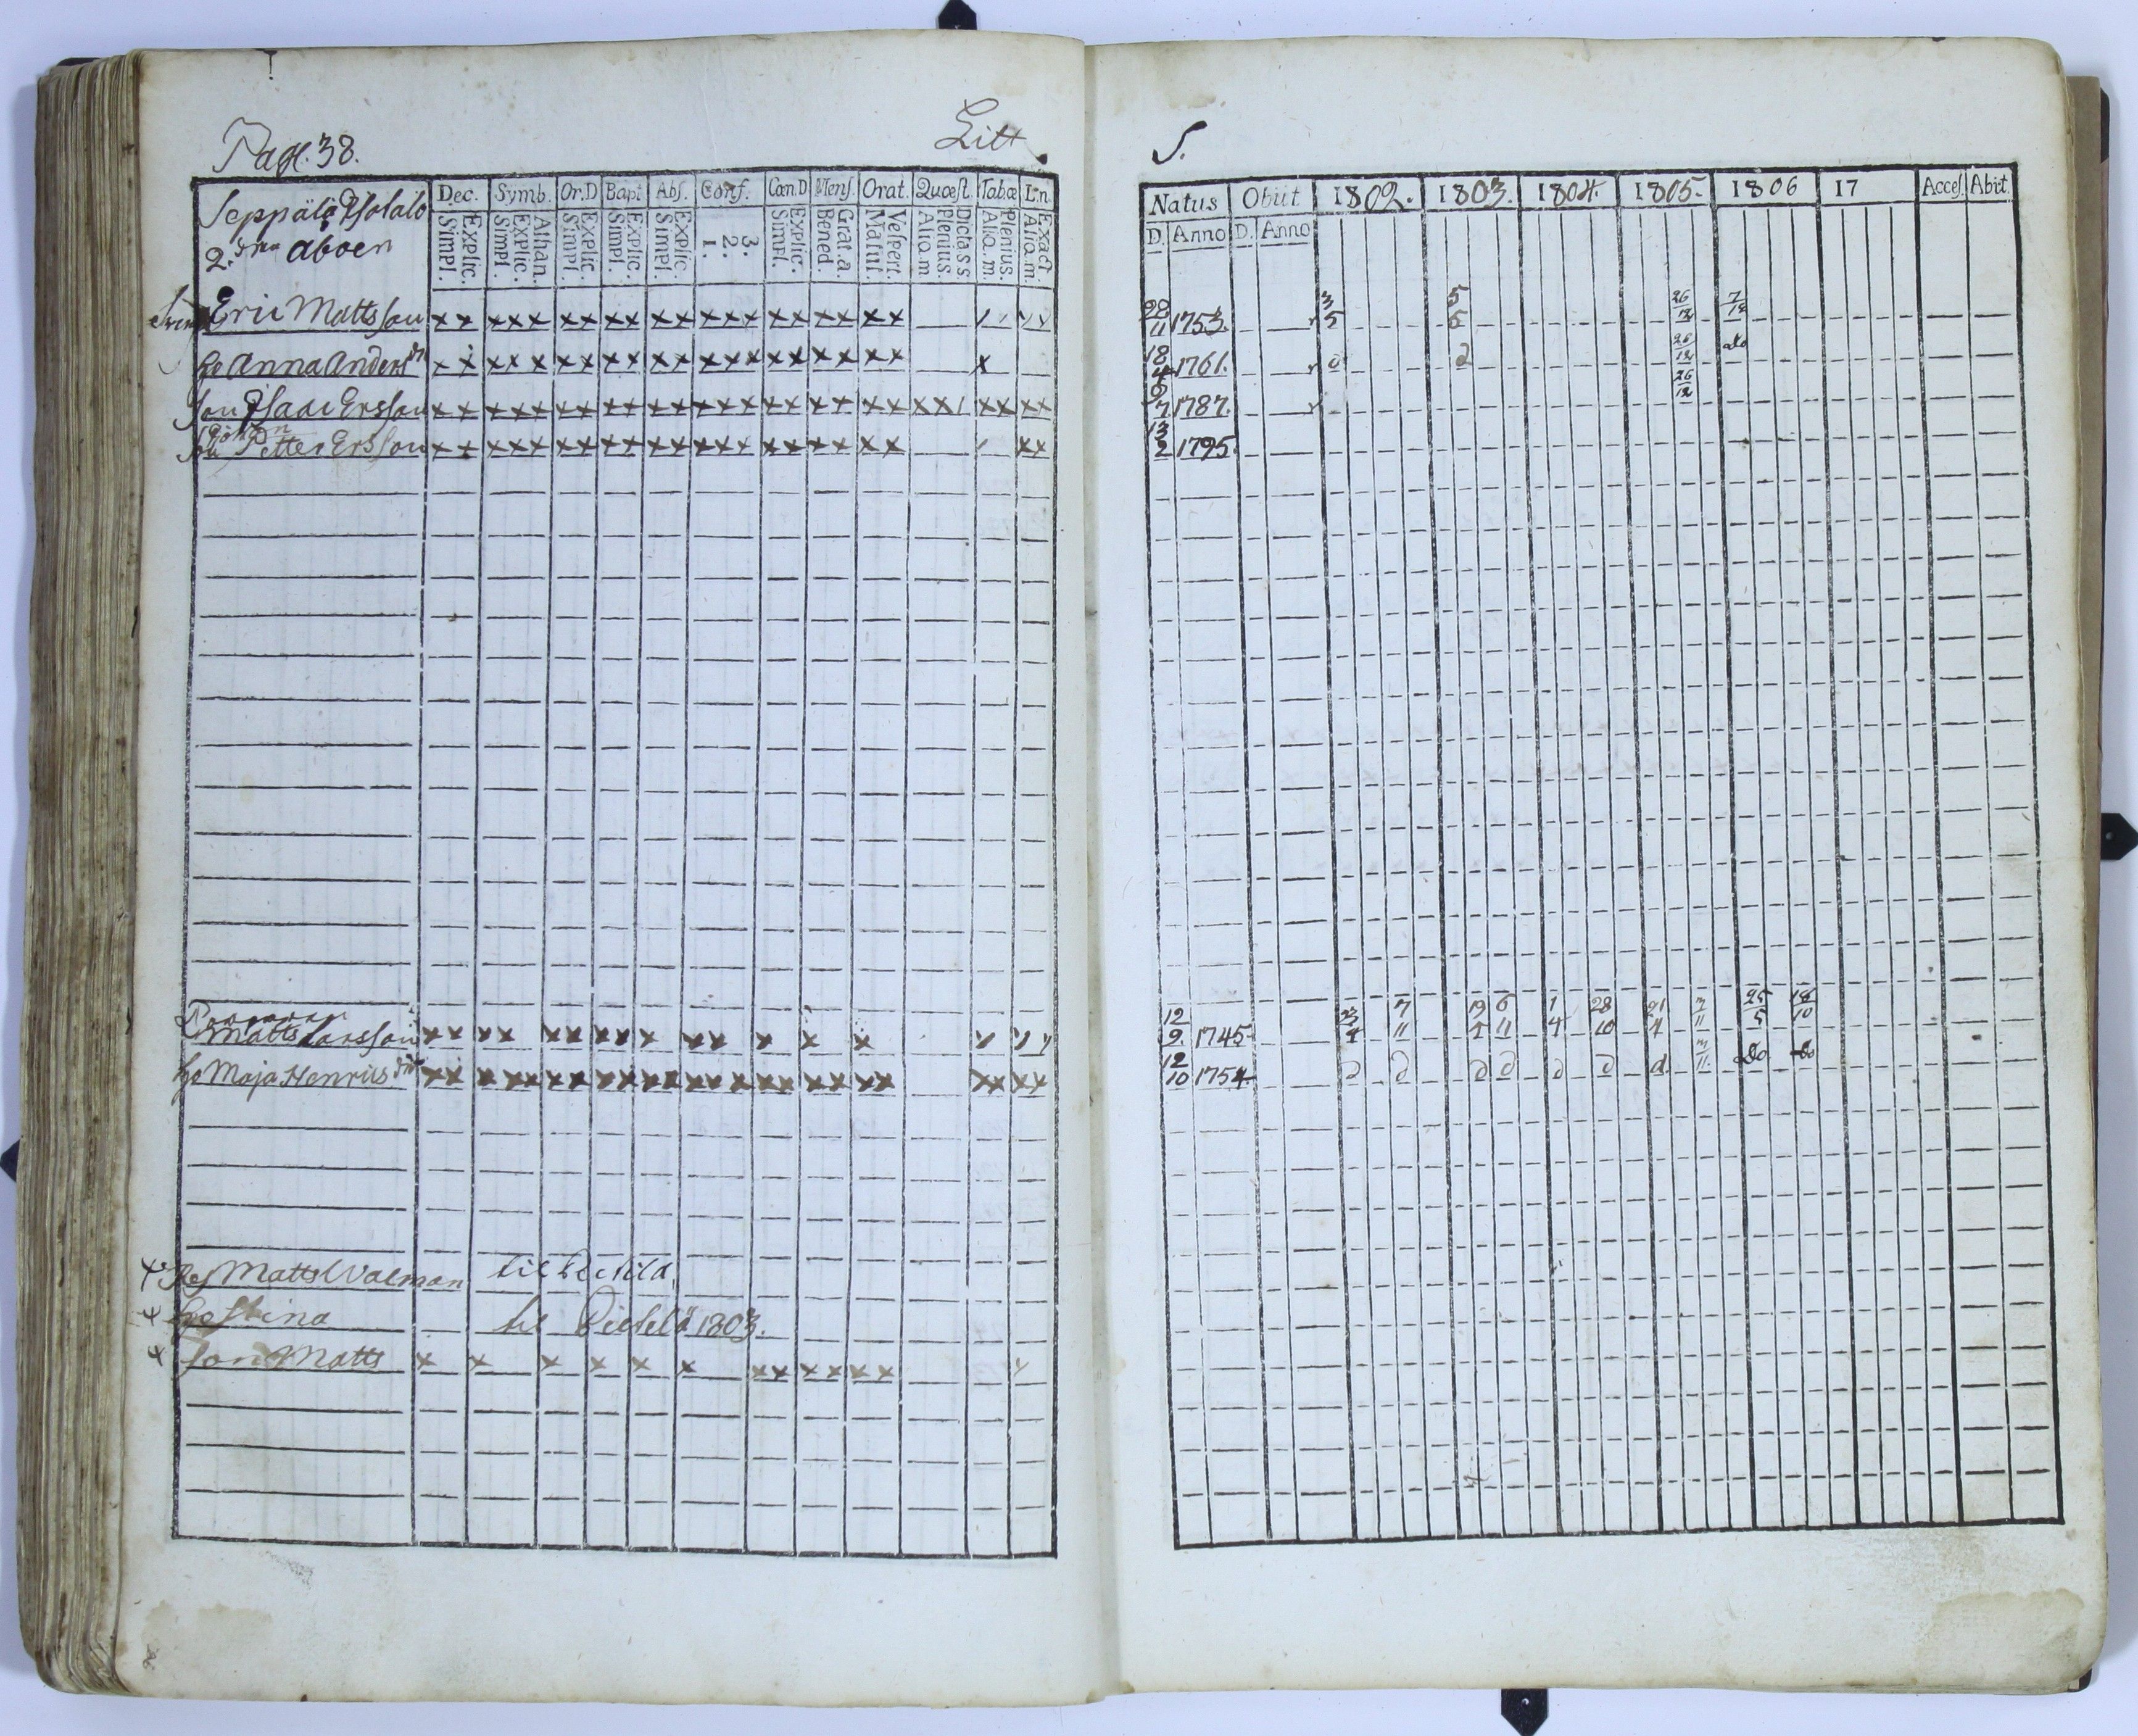 Pag. 38.
Litt
S.
Seppälä
2. aboen
Dec. Symb. Or.D Bapt Abſ. Conf. Cœn.D Menſ. Orat. Quæſt. Tab.œ L:n.
Explic. Simpl. Athan. Explic. Simpl. Explic. Simpl. Explic. Simpl. Explic. Simpl. 3. 2. 1. Explic. Simpl. Grat.a. Bened. Veſpert. Matut. Dicta s s. Plenius. Aliq.m. Plenius. Aliq.m. Exact Aliq.m.
Natus Obiit 1802. 1803. 1804. 1805. 1806 17 Acceſ. Abiit.
D. Anno D. Anno
Eric Mattsson x x x x x x x x x x x x x x x x x x x x 28/11 1753. 3/5 5/6 26/12 7/12
Anna Anders x x x x x x x x x x x x x x x x x x x x x 18/4 1761. 26/12 do
Son Isaac Ersson x x x x x x x x x x x x x x x x x x x x x x x x x x 9/7 1787. 26/12
Petter Ersson x x x x x x x x x x x x x x x x x x x x x x 13/2 1795.
Matts Larsson x x x x x x x x x x x x x x 12/9 1745 7/11 6/11 1/4 28/10 21/4 25/5
Maja Henrics x x x x x x x x x x x x x x x x x x x x x x x x 12/10 1754 d d d d d d d do do
Matts Walman til
Stina
til 1803.
Son Matts x x x x x x x x x x x x